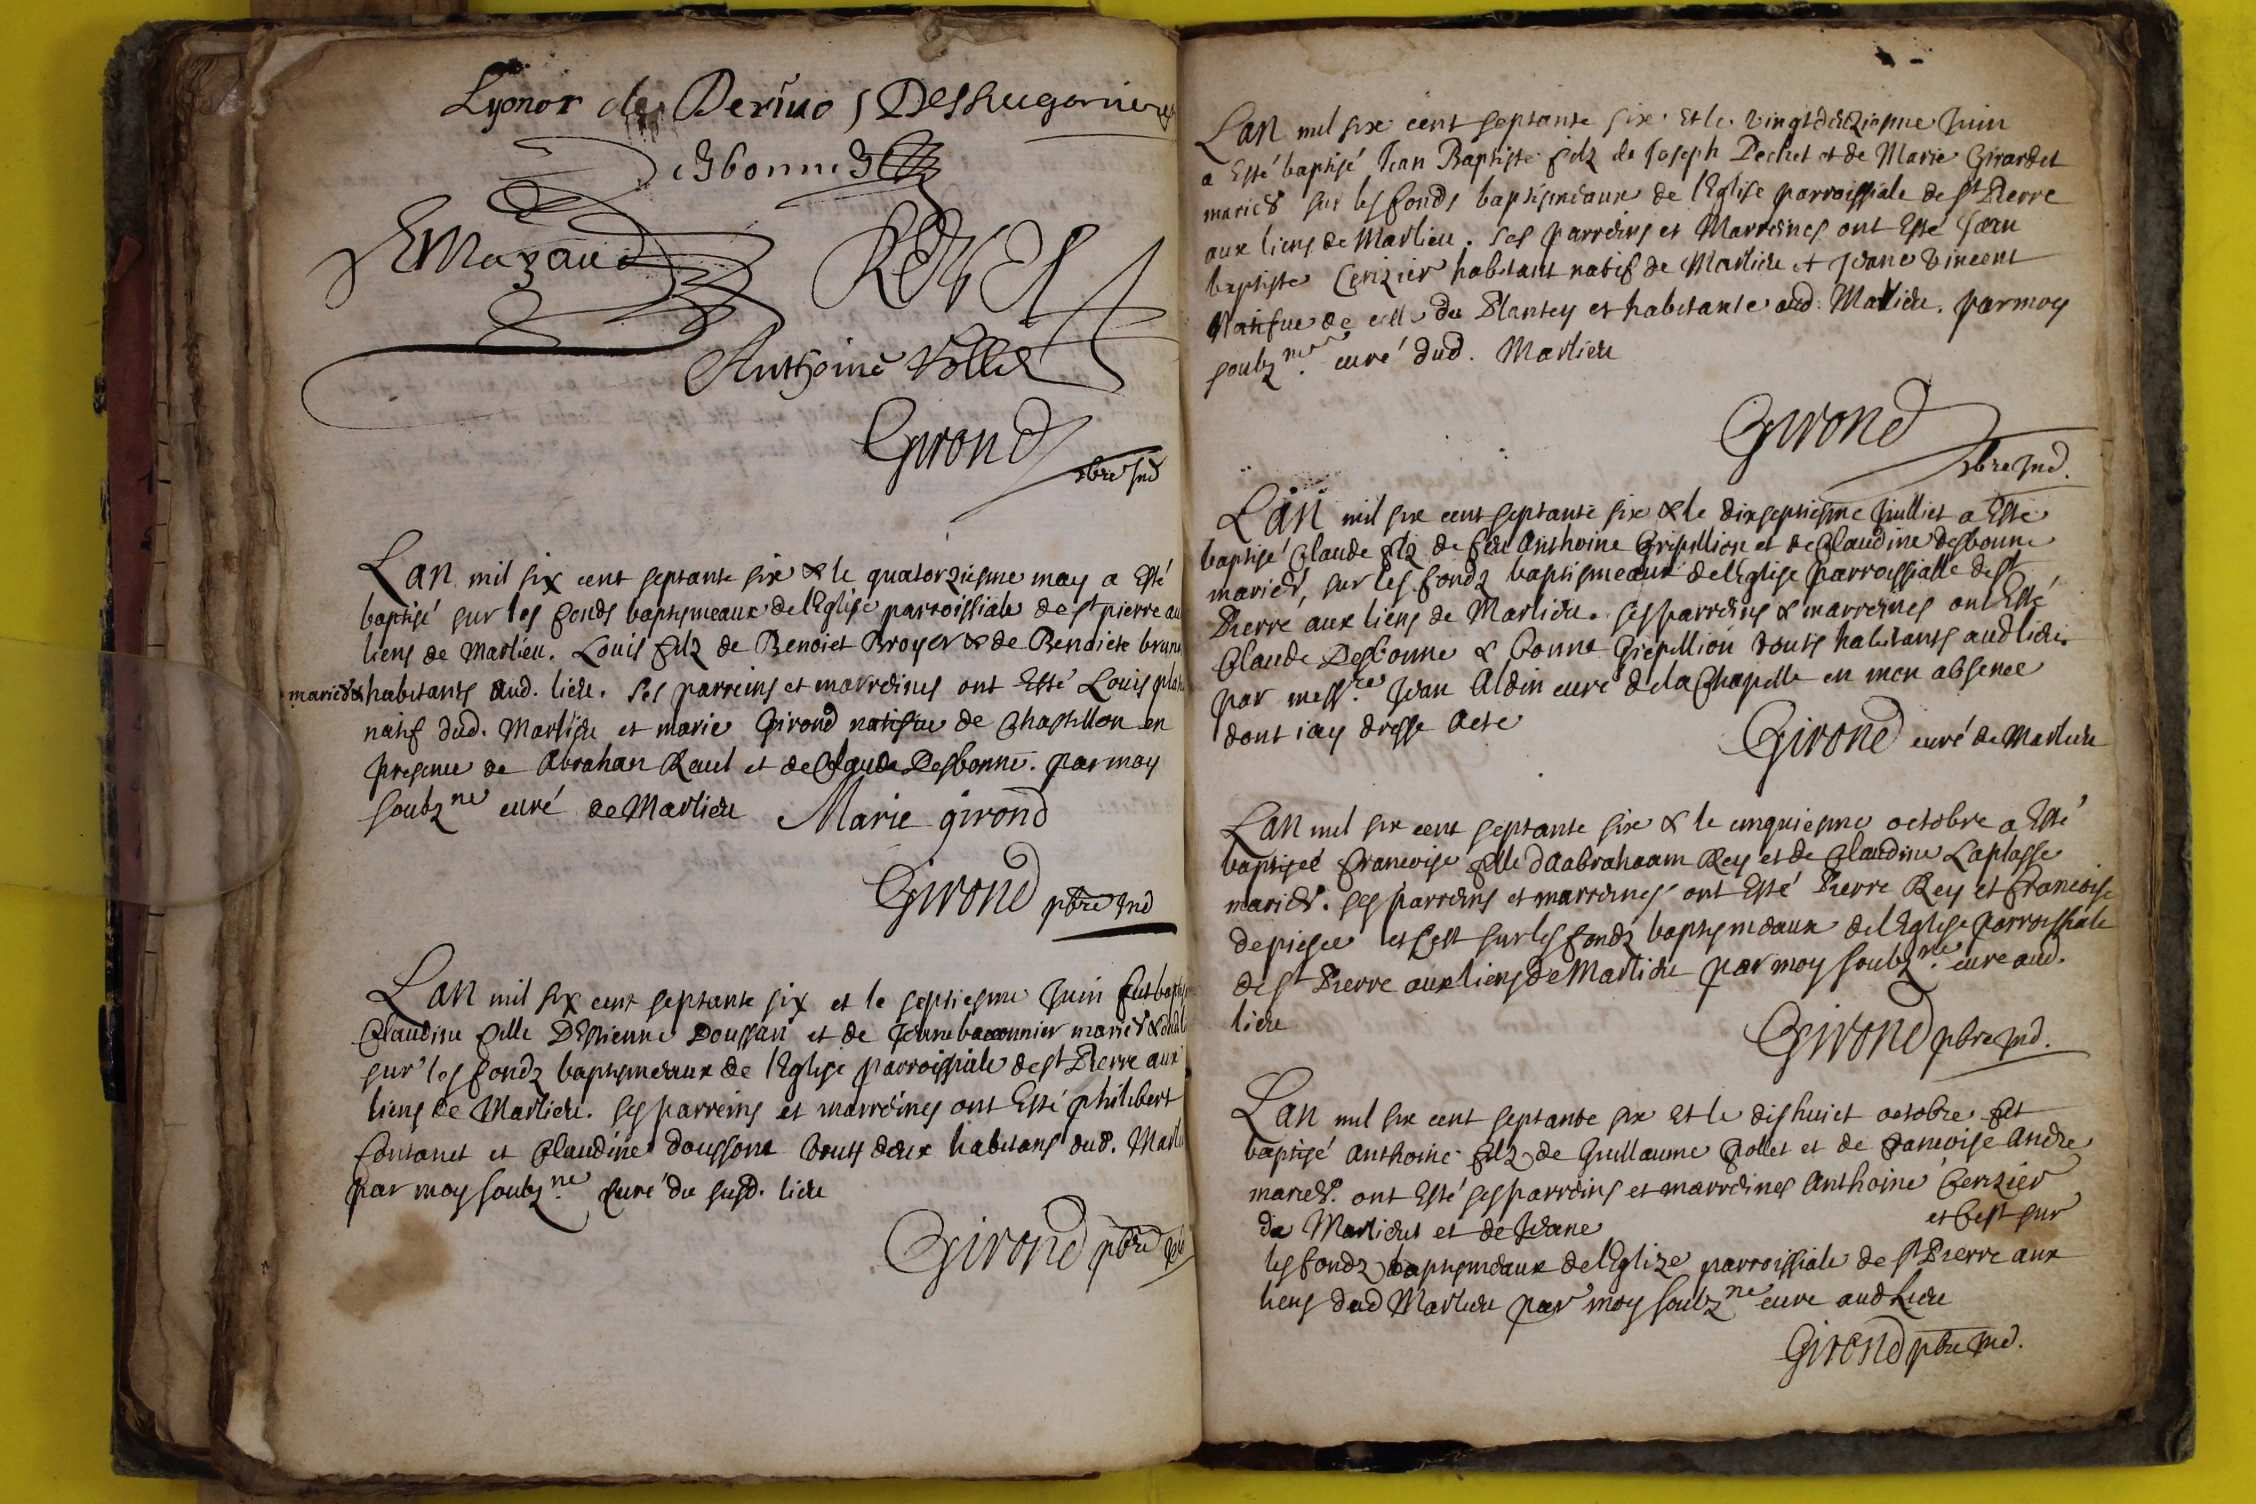 Lyonor de
Anthoine
Girond
pbre Ind
Lan mil six cent septante six & le quatorziesme may a Esté
baptisé sur les fonds baptismeaux de l'Eglise parroissiale de st pierre au
liens de Marlieu. Louis filz de Benoiet Broyer & de Benoiete brun
mariés & habitants aud. lieu. Ses parreins et marreines ont Esté Louis
natif dud. Marlieu et marie Girond natifue de Chastillon en
presence de Abrahan Raul et de Claude Desbonne. par moy
soubzne curé de Marlieu Marie girond
Girond pbre Ind
Lan mil six cent septante six et le septiesme Juin fut
Claudine fille D'Estienne Doussan et de Jeanne baconnier mariés &
sur les fondz baptismeaux de l'Eglise parroissiale de st Pierre aux
liens de Marlieu. Ses parreins et marreines ont Esté philibert
fontanet et Claudine doussone touts deux habitans dud. Marlieu
par moy soubzne. Curé du susd. lieu
Girond pbre
Lan mil six cent septante six et le vingtdeuziesme Juin
a Esté baptisé Jean Baptiste filz de Joseph Pechet et de Marie Girardet
mariés sur les fonds baptismeaux de l'Eglise parroissiale de st Pierre
aux liens de Marlieu. Ses parreins et Marreines ont Esté Jean
baptiste Cerizier habitant natif de Marlieu et Jeane Vincent
Natifue de celle du Plantey et habitante aud. Marlieu. par moy
soubzne. curé dud. Marlieu
Girond
pbre Ind.
Lan mil six cent septante six & le dixseptiesme Juilliet a Esté
baptisé Claude filz de feu Anthoine Gripillion et de Claudine desbonne
mariés, sur les fondz baptismeaux de l'Eglise parroissialle de st
Pierre aux liens de Marlieu. ses parreins & marreines ont Esté
Claude Desbonne & Bonne Gripillion touts habitants aud lieu.
par messre Jean Aldin curé de la Chapelle en mon absence
dont iay dresse Acte
Girond curé de Marlieu
Lan mil six cent septante six & le cinquiesme octobre a Esté
baptiseé francoise fille d'Aabrahaam Rey et de Claudine Laplasse
mariés. ses parreins et marreines ont Esté Pierre Rey et francoise
depiesse et Cest sur les fondz baptismeaux de l'Eglise parroissiale
de st Pierre aux liens de Marlieu par moy soubzne. cure aud.
lieu
Girond pbre Ind.
Lan mil six cent septante six et le dishuict octobre fut
baptisé Anthoine filz de Guillaume follet et de francoise Andre
mariés. ont Esté ses parreins et marreines Anthoine Cerizier
de Marlieu et de Jeane et Cest sur
les fondz baptismeaux de l'Eglize parroissiale de st Pierre aux
liens dud Marlieu par moy soubzne cure aud Lieu
Girond pbre Ind.